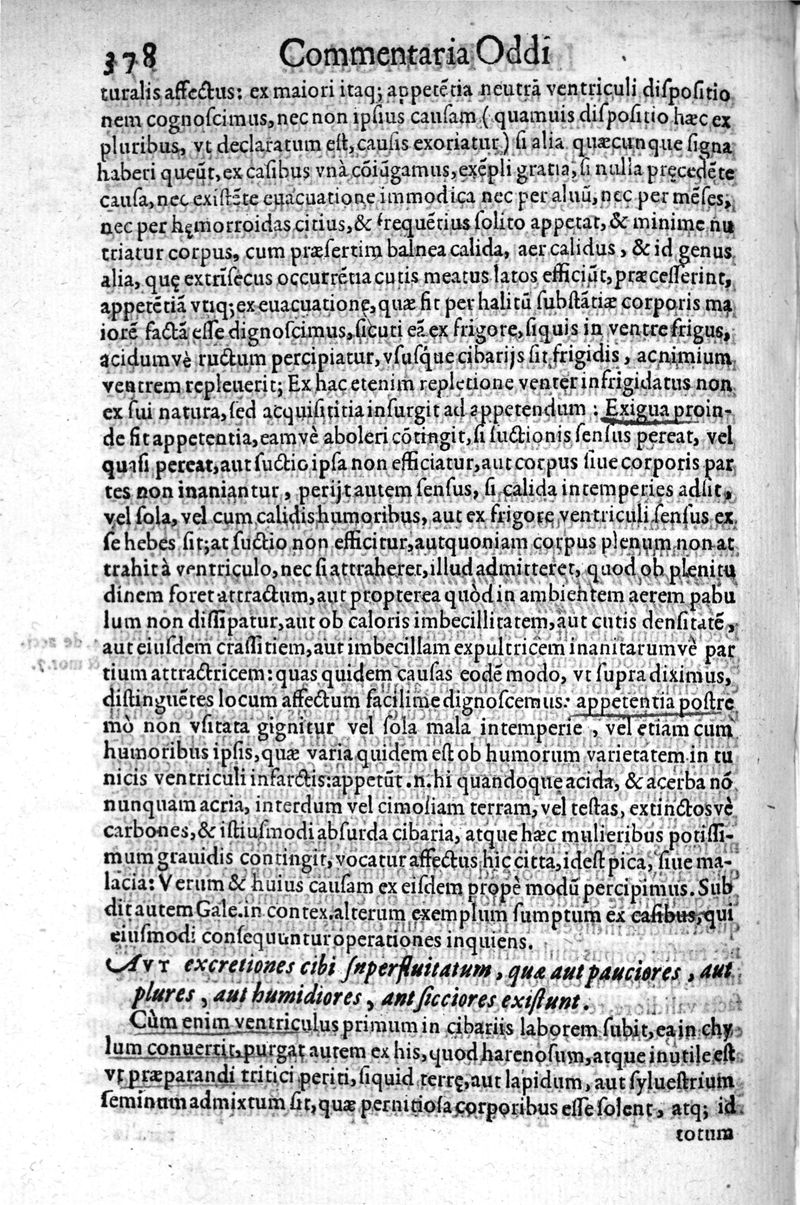 378 Commentaria Oddi
turalis affectus: ex maiori itaq; appetẽtia neutrã ventriculi dispositio
nem cognoscimus, nec non ipsius causam ( quamuis dispositio hæc ex
pluribus, vt declaratum est, causis exoriatur ) si alia quæcunque signa
haberi queũt, ex casibus vnà cõiũgamus, exẽpli gratia, si nulla pręcedẽte
causa, nec existẽte euacuatione immodica nec per aluũ, nec per mẽses,
nec per hęmorroidas citius, & frequẽtius solito appetat, & minime nu
triatur corpus, cum præsertim balnea calida, aer calidus, & id genus
alia, quę extrĩsecus occurrẽtia cutis meatus latos efficiũt, præcesserint,
appetẽtiã vtiq; ex euacuationę, quæ fit per halitũ substãtiæ corporis ma
iorẽ factã esse dignoscimus, sicuti eã ex frigore, si quis in ventre frigus,
acidumvè ructum percipiatur, vsusque cibarijs sit frigidis, ac nimium
ventrem repleuerit; Ex hac etenim repletione venter infrigidatus non
ex sui natura, sed acquisititia insurgit ad appetendum : Exigua proin-
de fit appetentia, eamvè aboleri cõtingit, si suctionis sensus pereat, vel
quasi pereat, aut suctio ipsa non efficiatur, aut corpus siue corporis par
tes non inaniantur, perijt autem sensus, si calida intemperies adsit,
vel sola, vel cum calidis humoribus, aut ex frigore ventriculi sensus ex
se hebes sit; at suctio non efficitur, aut quoniam corpus plenum non at
trahit à ventriculo, nec si attraheret, illud admitteret, quod ob plenitu
dinem foret attractum, aut propterea quòd in ambientem aerem pabu
lum non dissipatur, aut ob caloris imbecillitatem, aut cutis densitatẽ,
aut eiusdem crassitiem, aut imbecillam expultricem inanitarumvè par
tium attractricem: quas quidem causas eodẽ modo, vt supra diximus,
distinguẽtes locum affectum facilime dignoscemus: appetentia postre
mò non vsitata gignitur vel sola mala intemperie, vel etiam cum
humoribus ipsis, quæ varia quidem est ob humorum varietatem in tu
nicis ventriculi infarctis: appetũt .n. hi quandoque acida, & acerba nõ
nunquam acria, interdum vel cimoliam terram, vel testas, extinctosvè
carbones, & istiusmodi absurda cibaria, atque hæc mulieribus potissi-
mum grauidis contingit, vocatur affectus hic citta, idest pica, siue ma-
lacia: Verum & huius causam ex eisdem propè modũ percipimus. Sub
dit autem Gale. in contex. alterum exemplum sumptum ex casibus, qui
eiusmodi consequuntur operationes inquiens.
AVT excretiones cibi snperfluitatum, quæ aut pauciores, aut
plures, aut humidiores, ant sicciores existunt.
Cùm enim ventriculus primum in cibariis laborem subit, ea in chy
lum conuertit, purgat autem ex his, quod harenosum, atque inutile est
vt præparandi tritici periti, siquid terrę, aut lapidum, aut syluestrium
seminum admixtum sit, quæ pernitiosa corporibus esse solent, atq; id
totum